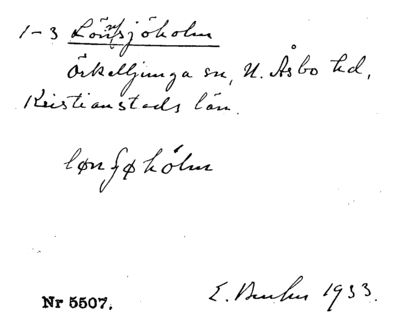 1-3 Lönsjöholm
Örkelljunga sn, N. Åsbo hd,
Kristianstads län.
lønʃøhólm
Nr 5507.
E. 1933.